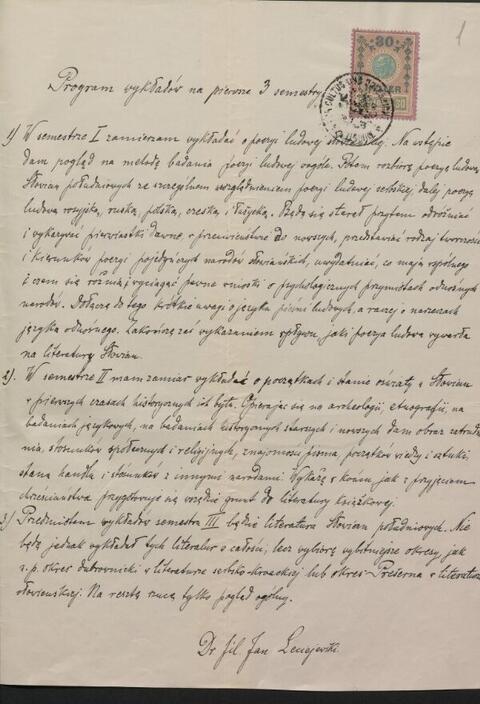 1
30
Program wykładów na pierwsze 3 semestry
1) W semestrze I zamierzam wykładać o poezyi ludowej słowiańskiej. Na wstępie
dam pogląd na metodę badania poezyi ludowej wogóle. Potem rozbiorę poezyę ludową
Słowian południowych ze szczególnem uwzględnieniem poezyi ludowej serbskiej dalej poezyę
ludową rosyjską, ruską, polską, czeską i łużycką. Będę się starał przytem odróżniać
i wykazywać pierwiastki dawne w przeciwieństwie do nowszych, przedstawiać rodzaj twórczości
i kierunków poezyi pojedyńczych narodów słowiańskich, uwydatniać, co mają wspólnego
i czem się różnią i wyciągać pewne wnioski o psychologicznych przymiotach odnośnych
narodów. Dołączę do tego krótkie uwagi o języku pieśni ludowych, a raczej o narzeczach
języka odnośnego. Zakończę zaś wykazaniem wpływu, jaki poezya ludowa wywarła
na literaturę Słowian.
2). W semestrze II mam zamiar wykładać o początkach i stanie oświaty u Słowian
w pierwszych czasach historycznych ich bytu. Opierając się na archeologii, etnografii, na
badaniach językowych, na badaniach historycznych starszych i nowszych dam obraz zatrud-
nia, stosunków społecznych i religijnych, znajomości pisma, początków wiedzy i sztuki,
stanu handlu i stosunków z innymi narodami. Wykażę w końcu, jak z przyjęciem
chrześcijaństwa przygotowuje się wszędzie grunt do literatury książkowej.
3) Przedmiotem wykładów semestru III będzie literatura Słowian południowych. Nie
będę jednak wykładał tych literatur w całości, lecz wybiorę wybitniejsze okresy, jak
n.p. okres dubrownicki w literaturze serbsko-kroackiej lub okres Prešerna w literaturze
słowieńskiej. Na resztę rzucę tylko pogląd ogólny.
Dr fil. Jan Leciejewski.